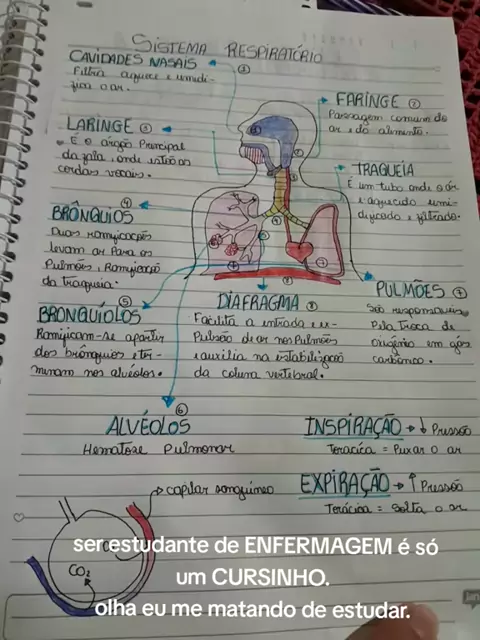 SISTEMA RESPIRATÓRIO
CAVIDADES NASAIS
Filtra aquece e umidi-
fica o ar.
1
FARINGE 2
Passagem comum do
ar e do alimento.
LARINGE 3
É o órgão Principal
da fala, onde estão as
cordas vocais.
TRAQUEIA
É um tubo onde o ar
é aquecido umi-
dificado e filtrado.
BRÔNQUIOS
4
Duas ramificações
levam ar para os
Pulmões, Ramificação
da traqueia.
BRONQUÍOLOS
5
Ramificam-se apartir
dos brônquios e ter-
minam nos alvéolos.
DIAFRAGMA 8
Facilita a entrada e ex-
Pulsão de ar nos Pulmões
e auxilia na estabilização
da coluna vertebral.
PULMÕES 7
São responsáveis
Pela troca de
oxigênio em gás
carbônico.
6
ALVÉOLOS
Hematose Pulmonar
INSPIRAÇÃO → ↓ Pressão
Torácica = Puxar o ar
EXPIRAÇÃO → ↑ Pressão
Torácica = Solta o ar
capilar sanguíneo
CO2
ser estudante de ENFERMAGEM é só
um CURSINHO.
olha eu me matando de estudar.